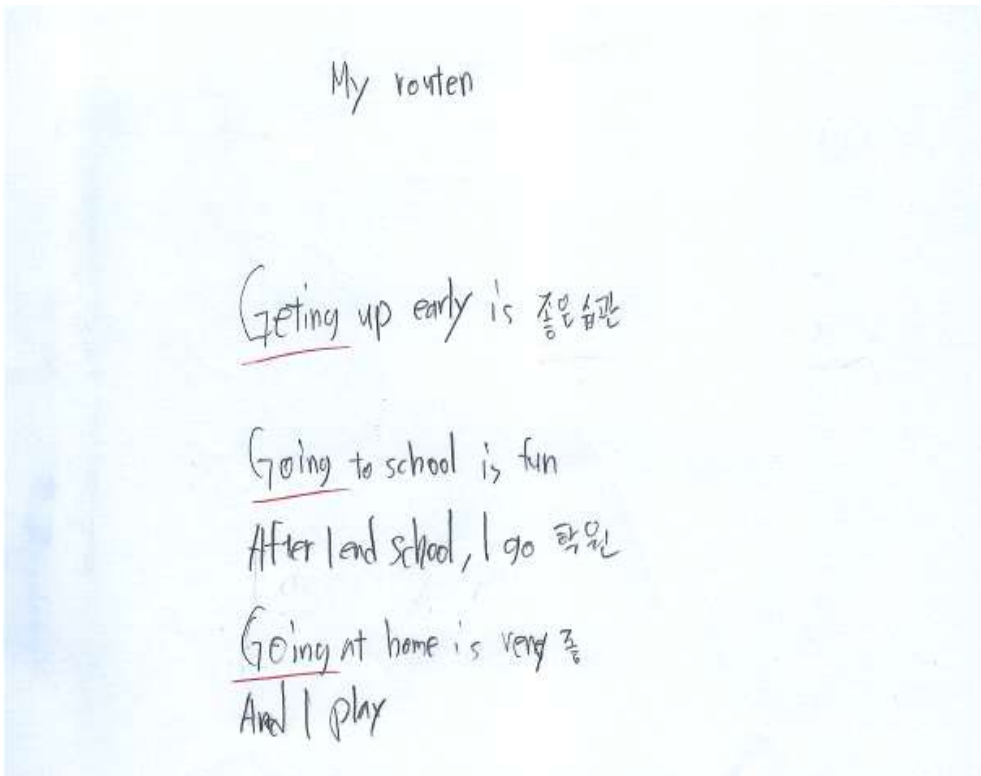 My routen
Geting up early is 좋은 습관
Going to school is fun
After I end school, I go 학원
Going at home is very 좋
And I play